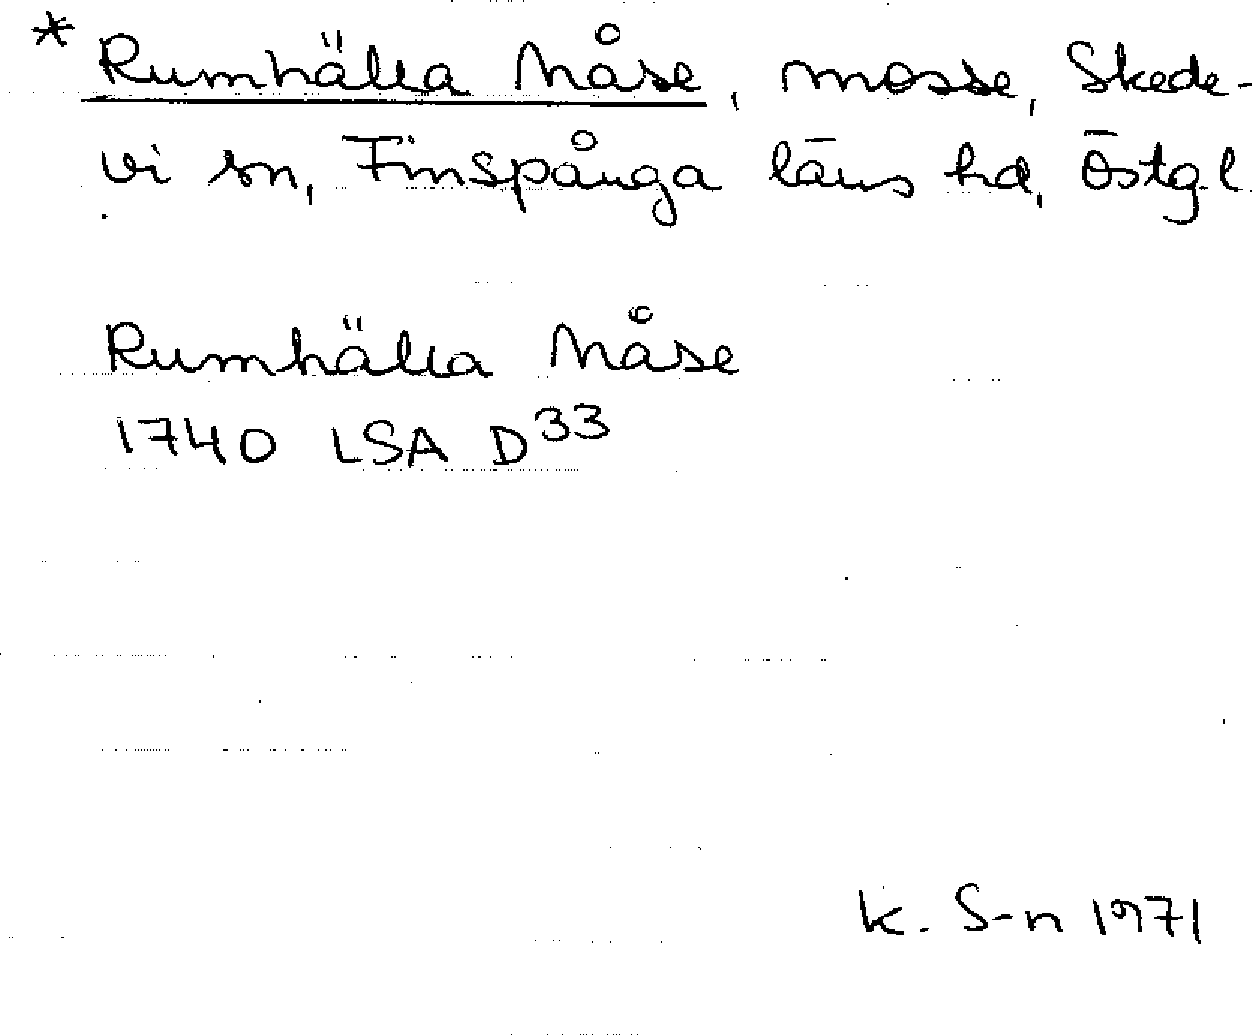 * Rumhälla Måse, mosse, Skede-
vi sn, Finspånga läns hd, Östg.l.
Rumhälla Måse
1740 LSA D33
K. S-n 1971